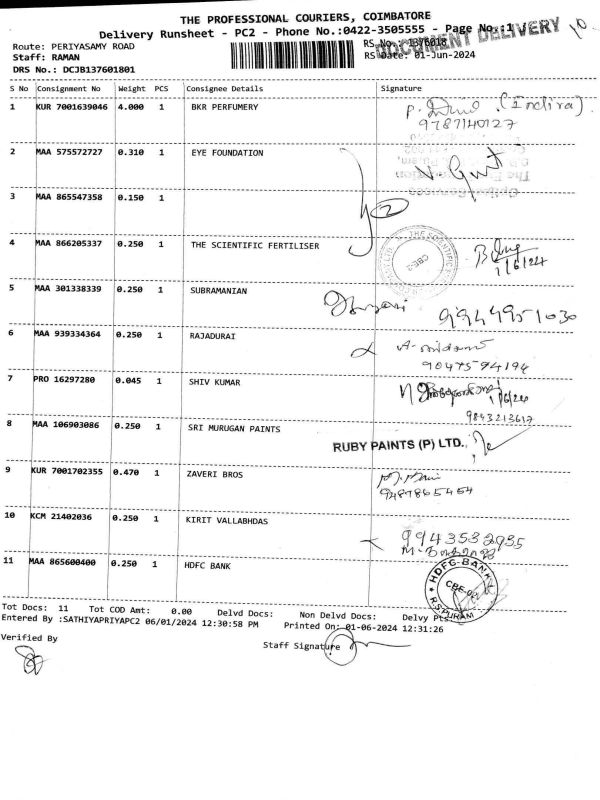 THE PROFESSIONAL COURIERS, COIMBATORE
Delivery Runsheet - PC2 - Phone No.:0422-3505555 - Page No.:1
DOCUMENT DELIVERY
10
Route: PERIYASAMY ROAD
RS No.: 1376018
Staff: RAMAN
RS Date: 01-Jun-2024
DRS No.: DCJB137601801
S No Consignment No Weight PCS Consignee Details Signature
1 KUR 7001639046 4.000 1 BKR PERFUMERY (Indira)
9787140127
2 MAA 575572727 0.310 1 EYE FOUNDATION
3 MAA 865547358 0.150 1
2
4 MAA 866205337 0.250 1 THE SCIENTIFIC FERTILISER
1/6/24
5 MAA 301338339 0.250 1 SUBRAMANIAN
9944951030
6 MAA 939334364 0.250 1 RAJADURAI
9047594194
7 PRO 16297280 0.045 1 SHIV KUMAR
1/6/24
9843213617
8 MAA 106903086 0.250 1 SRI MURUGAN PAINTS
RUBY PAINTS (P) LTD.,
9 KUR 7001702355 0.470 1 ZAVERI BROS
9487865454
10 KCM 21402036 0.250 1 KIRIT VALLABHDAS
9943532935
11 MAA 865600400 0.250 1 HDFC BANK
HDFC BANK
R S PURAM
Tot Docs: 11 Tot COD Amt: 0.00 Delvd Docs: Non Delvd Docs: Delvy Pts
Entered By :SATHIYAPRIYAPC2 06/01/2024 12:30:58 PM Printed On: 01-06-2024 12:31:26
Verified By
Staff Signature